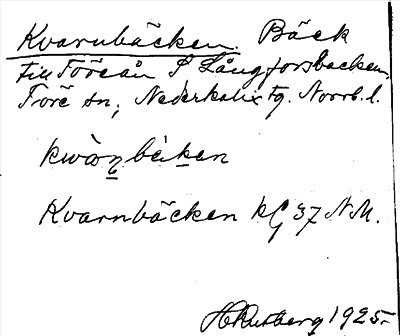 Kvarnbäcken. Bäck
till Töreån S Långforsbacken,
Töre sn, Nederkalix tg. Norrb. l.
kwàṇbèken
Kvarnbäcken kG 37 N.M.
H Rutberg 1925.